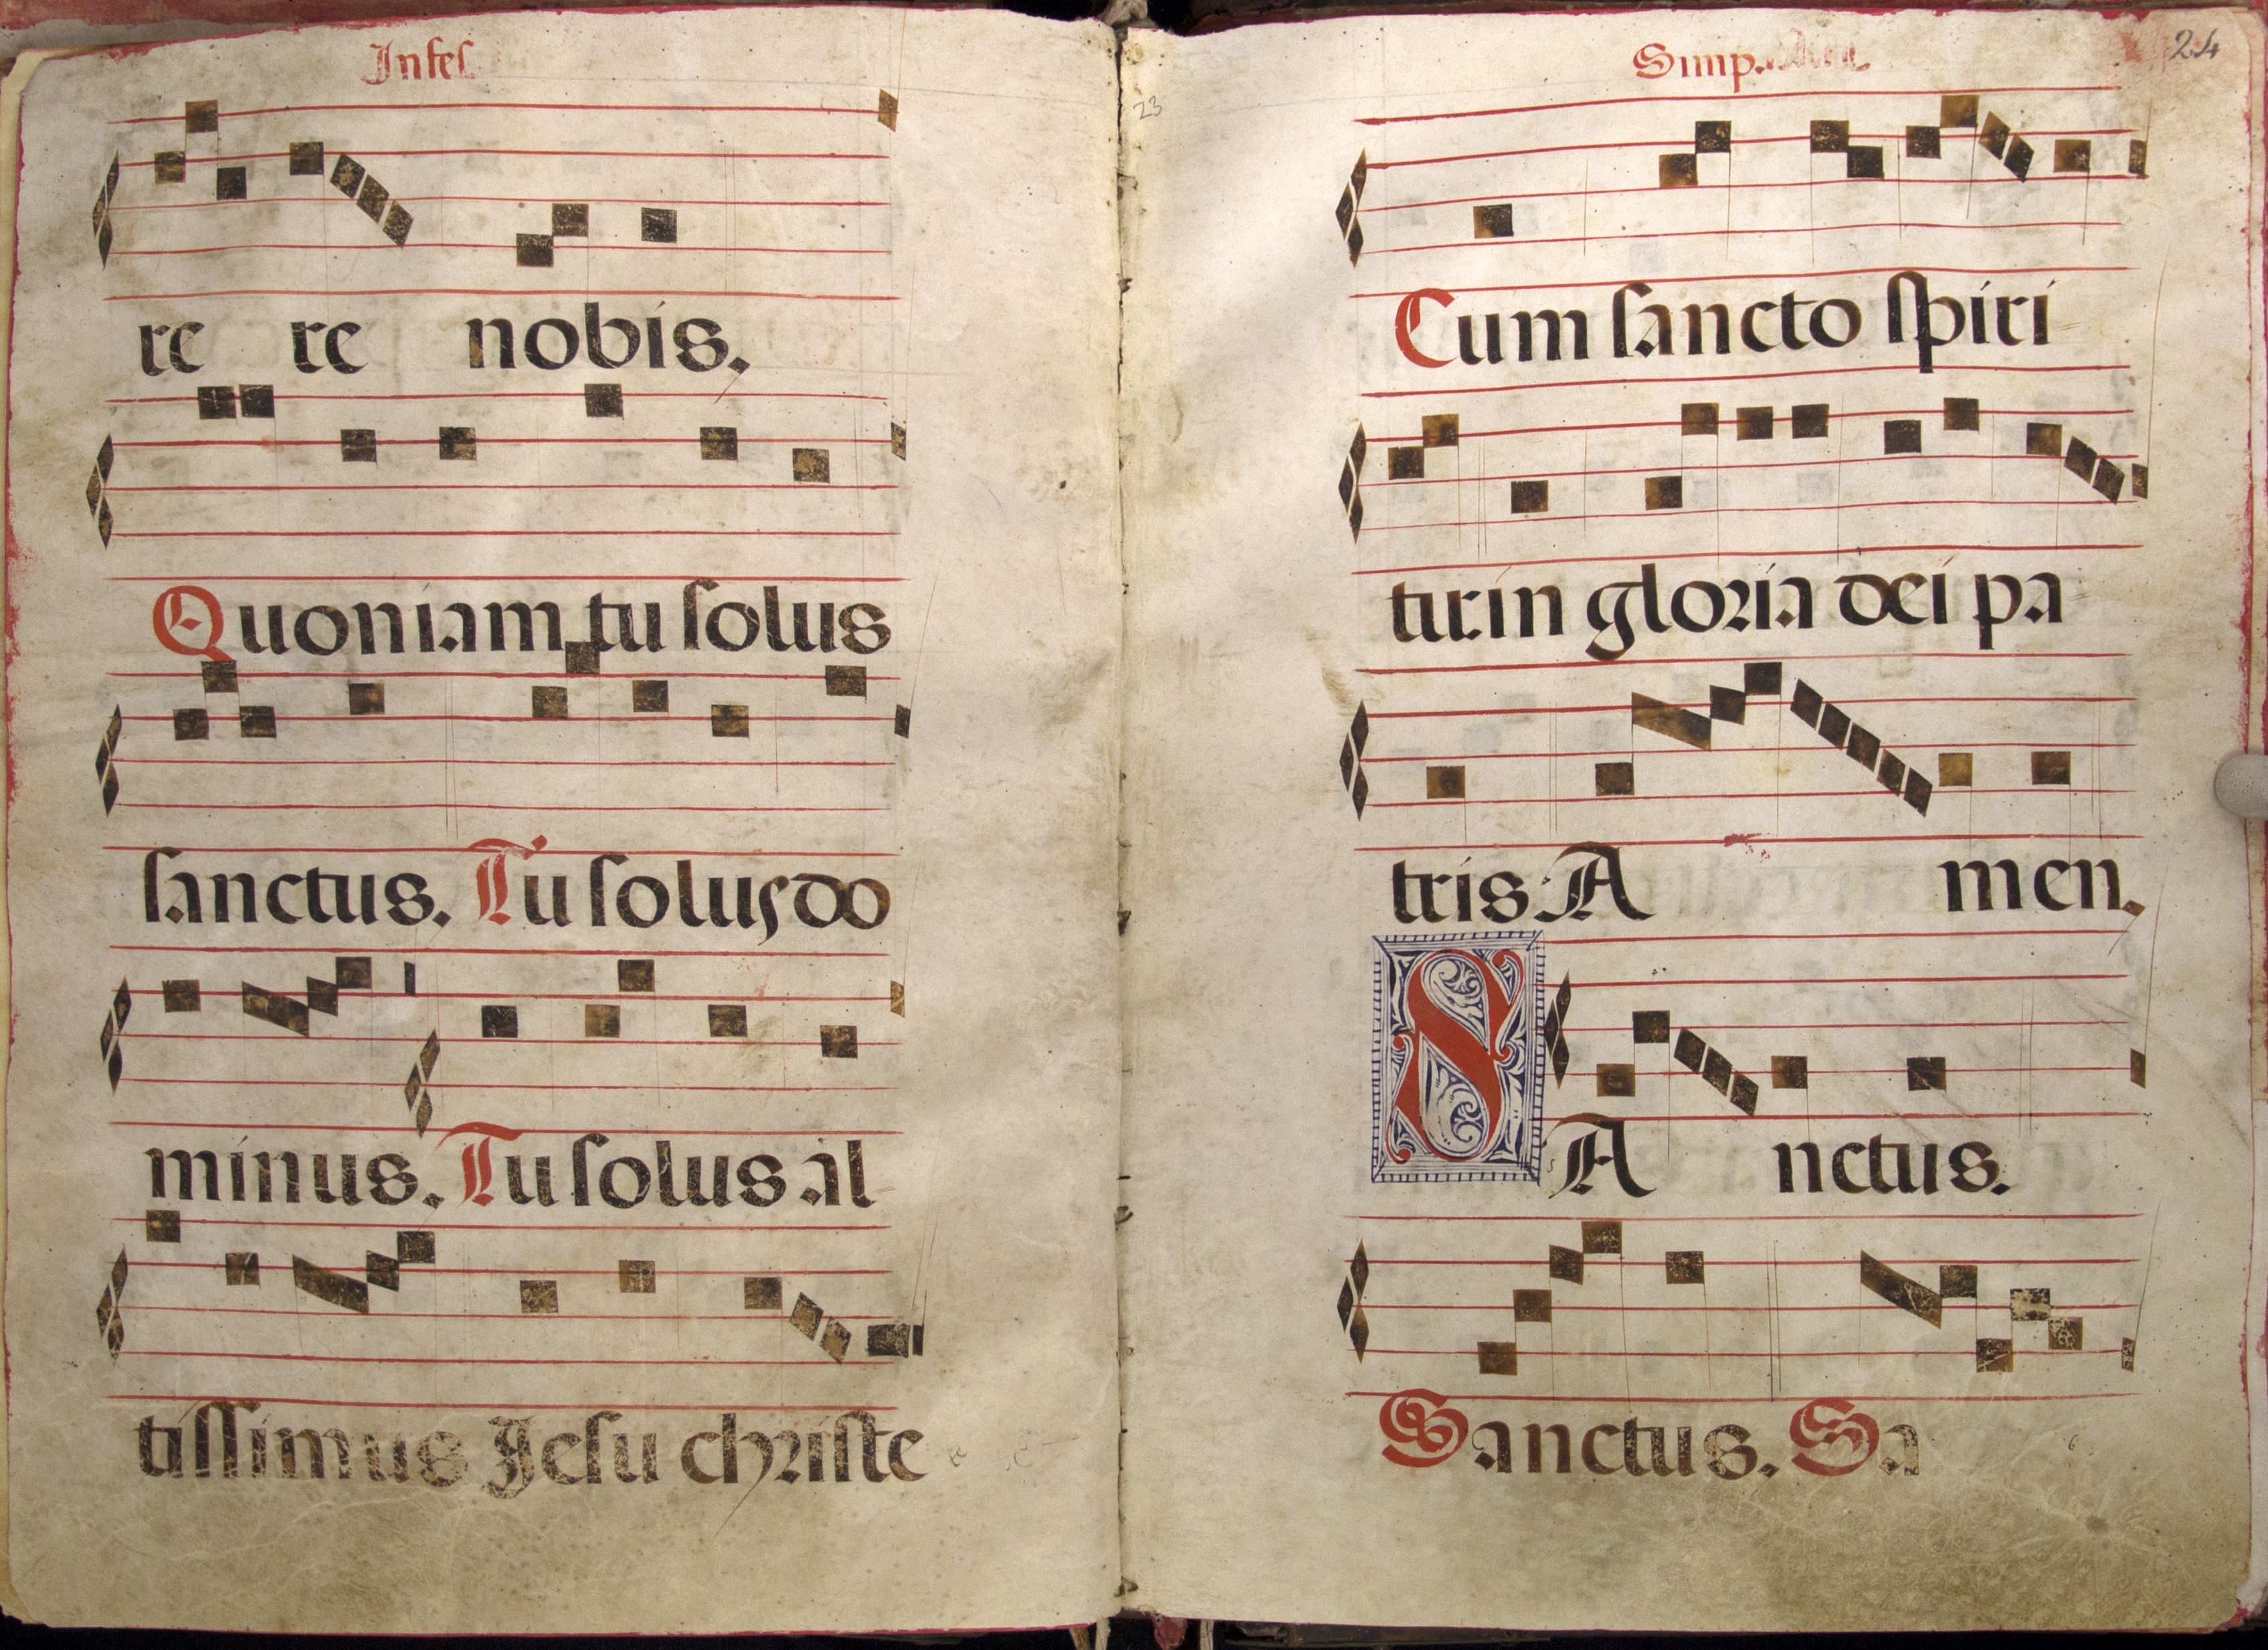 Infes
re re nobis.
Quoniam tu solus
sanctus. Tu solus do
minus. Tu solus al
tissimus Jesu christe
23
Simp.
24
Cum sancto spiri
tu: in gloria dei pa
tris. A men.
SAnctus.
Sanctus. Sa